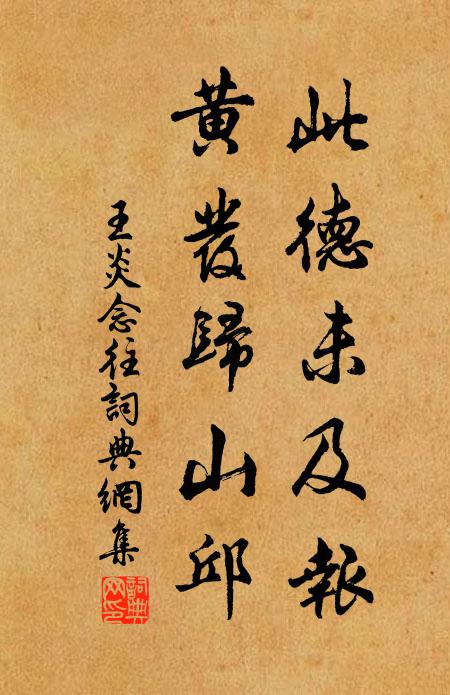 此德未及報
黄發歸山邱
王炎念往詞典網集
詞典網印